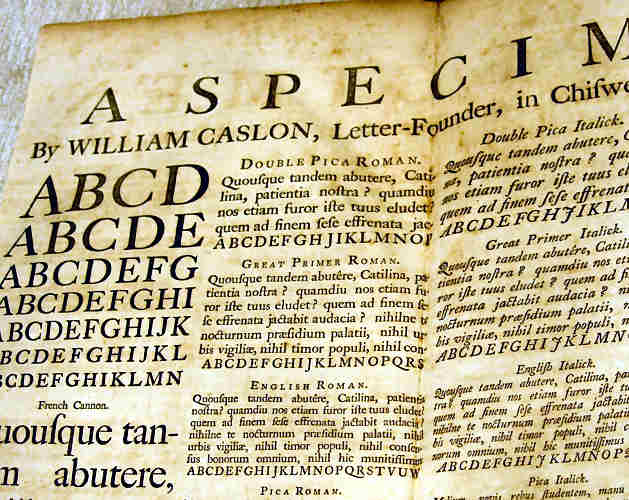 A SPECIM
By WILLIAM CASLON, Letter-Founder, in Chiſwe
ABCD
ABCDE
ABCDEFG
ABCDEFGHI
ABCDEFGHIJK
ABCDEFGHIJKL
BCDEFGHIKLMN
French Cannon.
uouſque tan-
abutere,
DOUBLE PICA ROMAN.
Quouſque tandem abutere, Cati-
lina, patientia noſtra? quamdiu
nos etiam furor iſte tuus eludet?
quem ad finem ſeſe effrenata jac-
ABCDEFGHJIKLMNOP
GREAT PRIMER ROMAN.
Quouſque tandem abutêre, Catilina, pa-
tientia noſtra? quamdiu nos etiam fu-
ror iſte tuus eludet? quem ad finem ſe-
ſe effrenata jactabit audacia? nihilne te
nocturnum præſidium palatii, nihil ur-
bis vigiliæ, nihil timor populi, nihil con-
ABCDEFGHIJKLMNOPQRS
ENGLISH ROMAN.
Quouſque tandem abutêre, Catilina, patientia
noſtra? quamdiu nos etiam furor iſte tuus eludet?
quem ad finem ſeſe effrenata jactabit audacia?
nihilne te nocturnum præſidium palatii, nihil
urbis vigiliæ, nihil timor populi, nihil conſen-
ſus bonorum omnium, nihil hic munitiſſimus
ABCDEFGHIJKLMNOPQRSTVUW
PICA ROMAN.
Double Pica Italick.
Quouſque tandem abutere, C
patientia noſtra? quam
nos etiam furor iſte tuus el
quem ad finem ſeſe effrenat
ABCDEFGHJIKLM
Great Primer Italick.
Quouſque tandem abutêre, Catili
tientia noſtra? quamdiu nos etia
ror iſte tuus eludet? quem ad fin
ſe effrenata jactabit audacia? n
nocturnum præſidium palatii, n
bis vigiliæ, nihil timor populi, n
ABCDEFGHIJKLMNO
Engliſh Italick.
Quouſque tandem abutere, Catilina, pa
tra? quamdiu nos etiam furor iſte tu
quem ad finem ſeſe effrenata jactabit
nihilne te nocturnum præſidium palatii,
bis vigiliæ, nihil timor populi, nihil c
norum omnium, nihil hic munitiſſimus
ABCDEFGHIJKLMNOPQ
Pica Italick.
rebus ſtudentem, manu